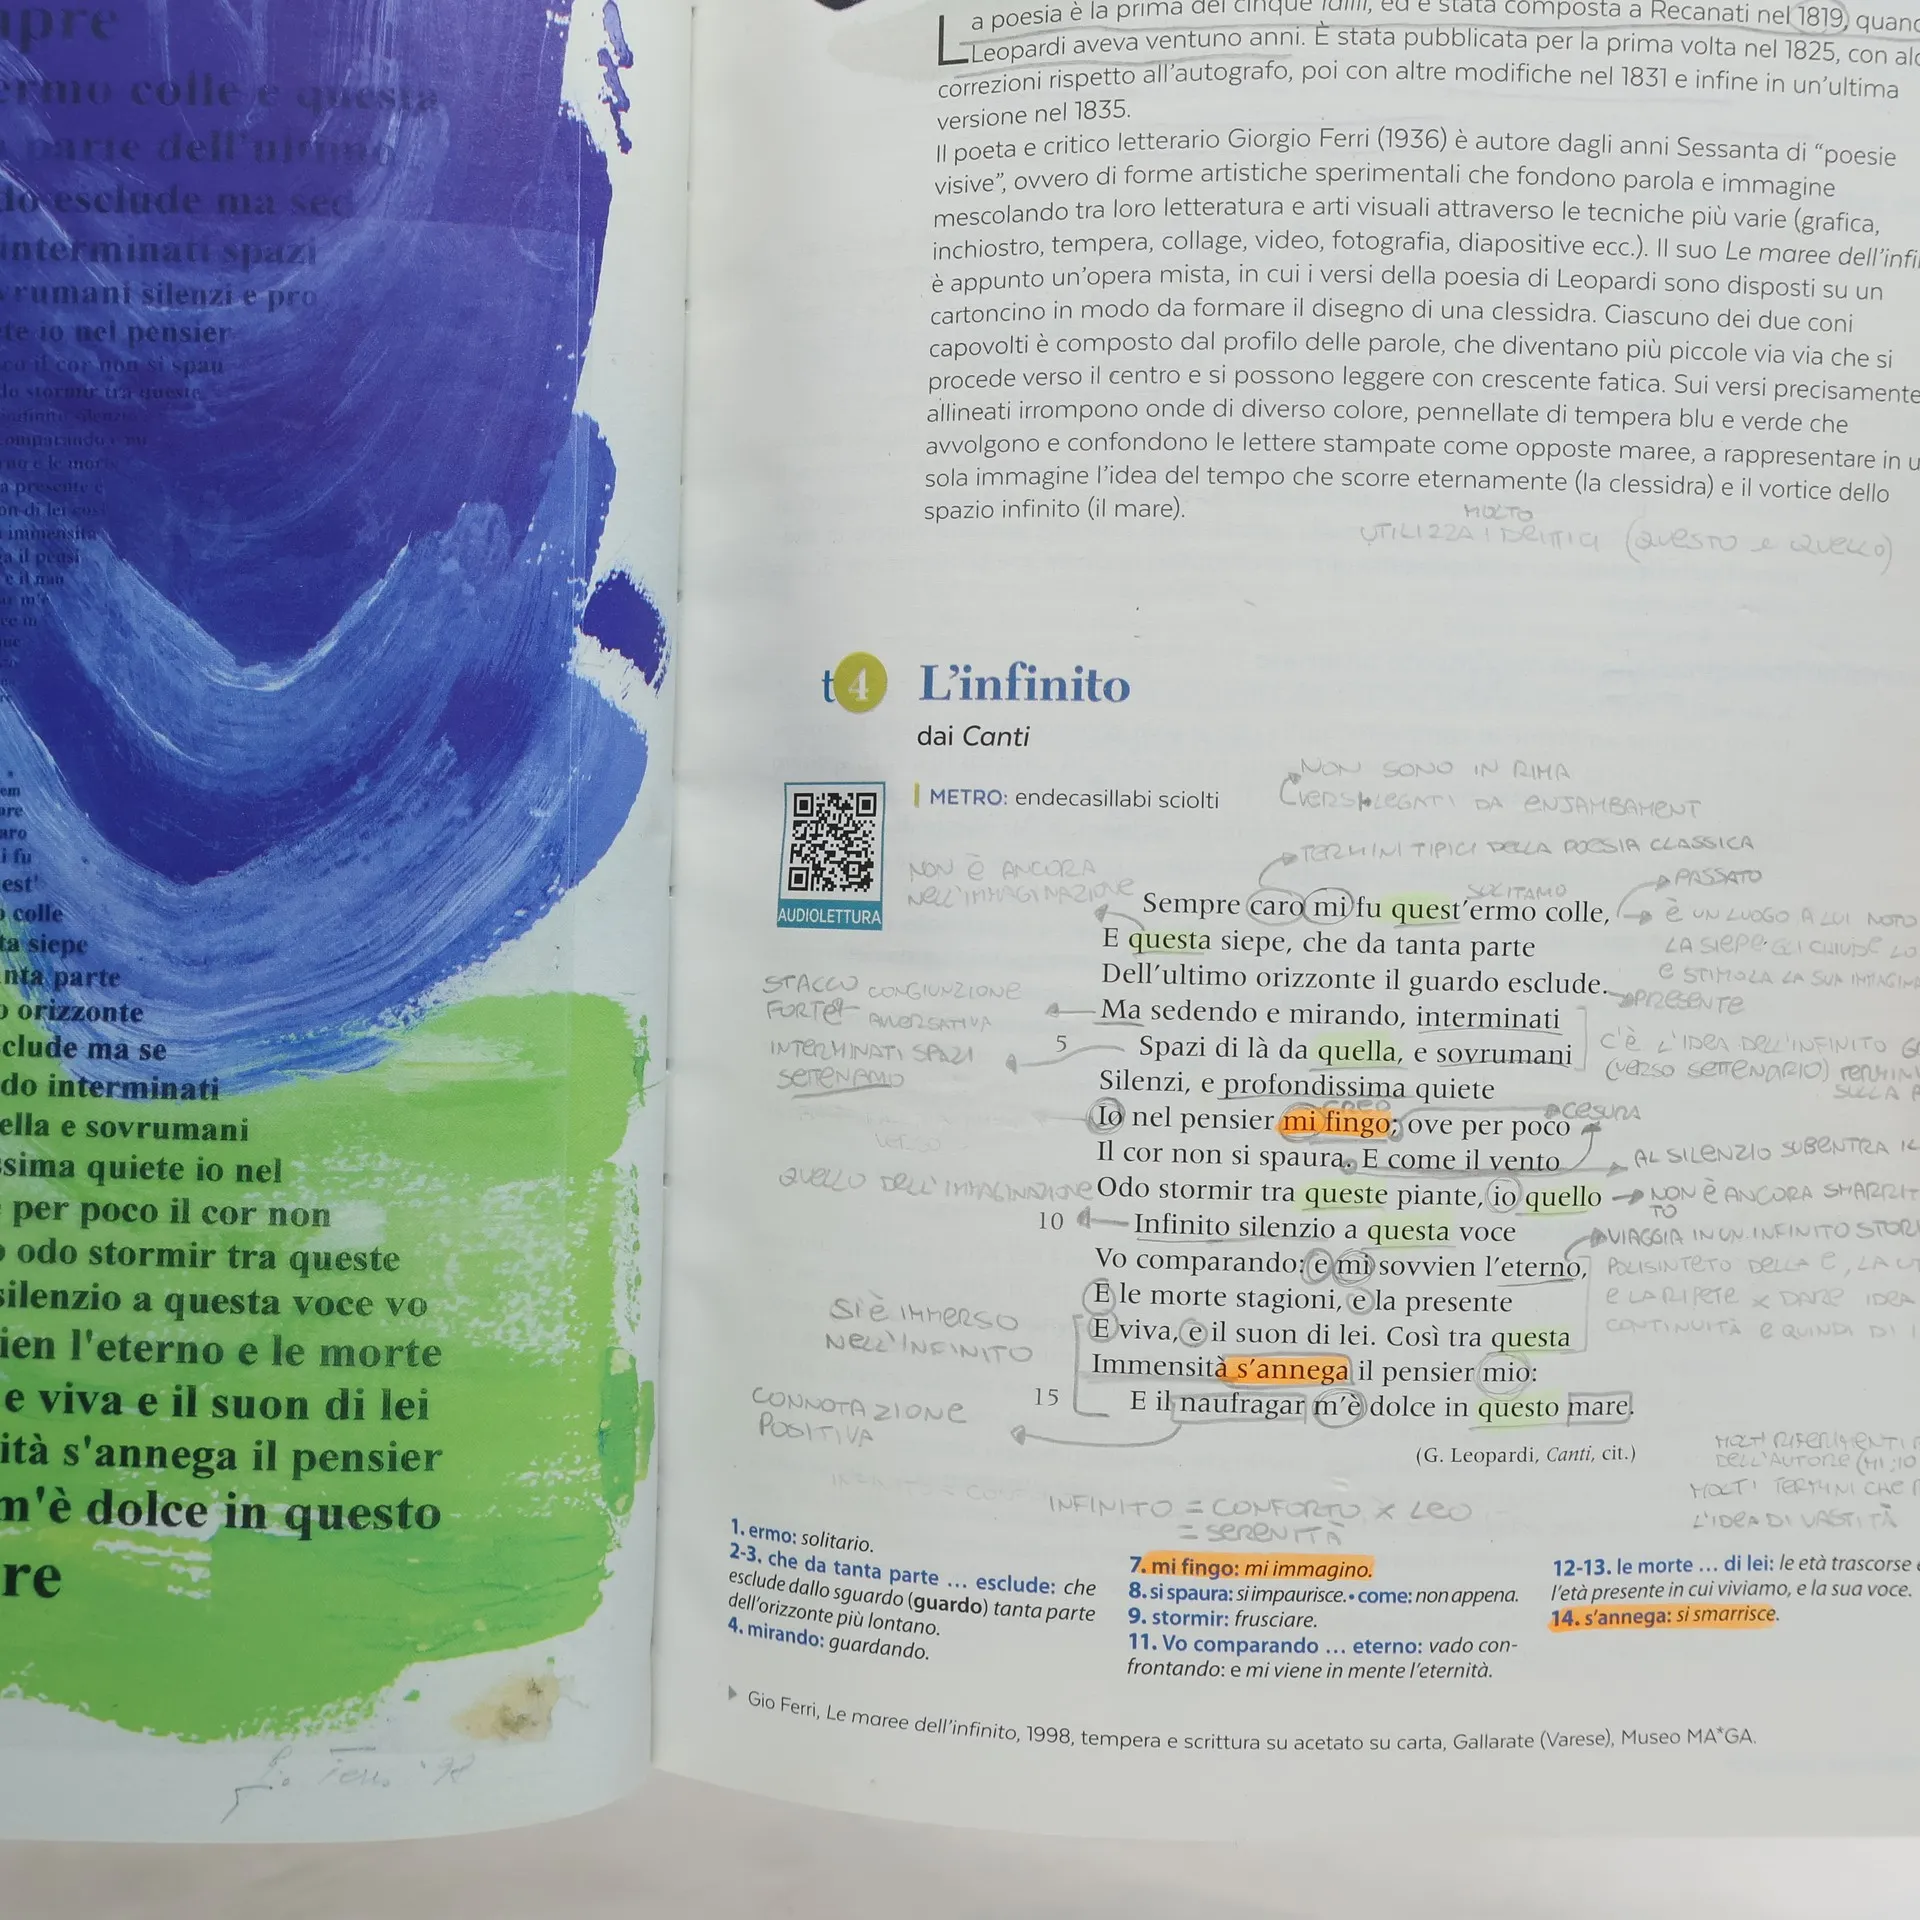 pre
ermo colle e questa
parte dell'ultimo
do esclude ma sed
interminati spazi
vrumani silenzi e pro
te io nel pensier
co il cor non si spau
do stormir tra queste
infinito silenzio
omparando e mi
no e le mort
a presente e
on di lei così
immensità
a il pensi
e il nau
ar m'è
ce in
em
are
aro
i fu
est'
o colle
ta siepe
nta parte
o orizzonte
clude ma se
do interminati
ella e sovrumani
ssima quiete io nel
per poco il cor non
o odo stormir tra queste
silenzio a questa voce vo
ien l'eterno e le morte
e viva e il suon di lei
ità s'annega il pensier
m'è dolce in questo
re
'98
La poesia è la prima dei cinque Idilli, ed è stata composta a Recanati nel 1819, quand
Leopardi aveva ventuno anni. È stata pubblicata per la prima volta nel 1825, con alc
correzioni rispetto all'autografo, poi con altre modifiche nel 1831 e infine in un'ultima
versione nel 1835.
Il poeta e critico letterario Giorgio Ferri (1936) è autore dagli anni Sessanta di “poesie
visive”, ovvero di forme artistiche sperimentali che fondono parola e immagine
mescolando tra loro letteratura e arti visuali attraverso le tecniche più varie (grafica,
inchiostro, tempera, collage, video, fotografia, diapositive ecc.). Il suo Le maree dell'infi
è appunto un'opera mista, in cui i versi della poesia di Leopardi sono disposti su un
cartoncino in modo da formare il disegno di una clessidra. Ciascuno dei due coni
capovolti è composto dal profilo delle parole, che diventano più piccole via via che si
procede verso il centro e si possono leggere con crescente fatica. Sui versi precisamente
allineati irrompono onde di diverso colore, pennellate di tempera blu e verde che
avvolgono e confondono le lettere stampate come opposte maree, a rappresentare in u
sola immagine l'idea del tempo che scorre eternamente (la clessidra) e il vortice dello
spazio infinito (il mare).
MOLTO
UTILIZZA I DEITTICI (QUESTO e QUELLO)
t4 L'infinito
dai Canti
METRO: endecasillabi sciolti
NON SONO IN RIMA
(VERSI LEGATI DA ENJAMBAMENT
AUDIOLETTURA
TERMINI TIPICI DELLA POESIA CLASSICA
NON È ANCORA
NELL'IMMAGINAZIONE
SOLITAMO
PASSATO
Sempre caro mi fu quest'ermo colle,
È UN LUOGO A LUI NOTO
E questa siepe, che da tanta parte
LA SIEPE GLI CHIUDE LO
Dell'ultimo orizzonte il guardo esclude.
E STIMOLA LA SUA IMMAGIN
PRESENTE
STACCO CONGIUNZIONE
FORTE AVVERSATIVA
Ma sedendo e mirando, interminati
INTERMINATI SPAZI
SETTENARIO
5 Spazi di là da quella, e sovrumani
C'È L'IDEA DELL'INFINITO
(VERSO SETTENARIO) TERMIN
SULLA
Silenzi, e profondissima quiete
CREO
CESURA
Io nel pensier mi fingo; ove per poco
VERSO
Il cor non si spaura. E come il vento
AL SILENZIO SUBENTRA IL
QUELLO DELL'IMMAGINAZIONE
Odo stormir tra queste piante, io quello
NON È ANCORA SMARRIT
TO
10 Infinito silenzio a questa voce
VIAGGIA IN UN INFINITO STOR
Vo comparando: e mi sovvien l'eterno,
POLISINTETO DELLA E, LA
E le morte stagioni, e la presente
E LA RIPETE X DARE IDEA
E viva, e il suon di lei. Così tra questa
CONTINUITÀ E QUINDI DI
SI È IMMERSO
NELL'INFINITO
Immensità s'annega il pensier mio:
15 E il naufragar m'è dolce in questo mare.
CONNOTAZIONE
POSITIVA
(G. Leopardi, Canti, cit.)
MOLTI RIFERIMENTI
DELL'AUTORE (MI, IO
MOLTI TERMINI CHE
L'IDEA DI VASTITÀ
INFINITO = CONFORTO X LEO
= SERENITÀ
1. ermo: solitario.
2-3. che da tanta parte ... esclude: che
esclude dallo sguardo (guardo) tanta parte
dell'orizzonte più lontano.
4. mirando: guardando.
7. mi fingo: mi immagino.
8. si spaura: si impaurisce. • come: non appena.
9. stormir: frusciare.
11. Vo comparando ... eterno: vado con-
frontando: e mi viene in mente l'eternità.
12-13. le morte ... di lei: le età trascorse e
l'età presente in cui viviamo, e la sua voce.
14. s'annega: si smarrisce.
Gio Ferri, Le maree dell'infinito, 1998, tempera e scrittura su acetato su carta, Gallarate (Varese), Museo MA*GA.